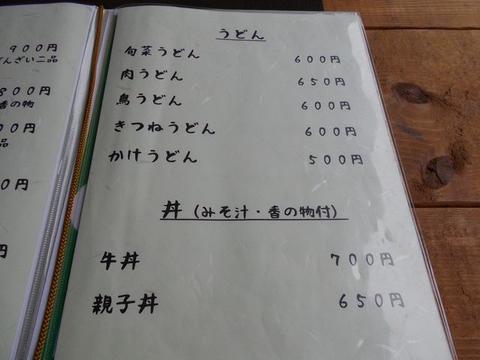 ９００円
んざい二品
８００円
香の物
００円
二品
０円
円
うどん
旬菜うどん ６００円
肉うどん ６５０円
鳥うどん ６００円
きつねうどん ６００円
かけうどん ５００円
丼（みそ汁・香の物付）
牛丼 ７００円
親子丼 ６５０円